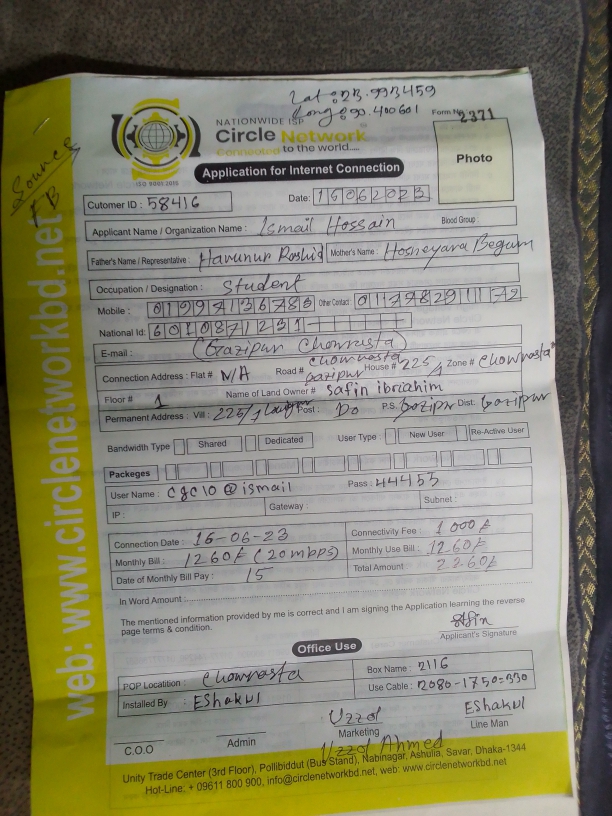 Lat :23.993459
Long:90.400601
Form No. 2371
NATIONWIDE ISP
Circle Network
Connected to the world.....
ISO 9001:2015
Source
FB
Photo
Application for Internet Connection
Cutomer ID : 58416
Date: 15062023
Applicant Name / Organization Name : Ismail Hossain Blood Group :
Father's Name / Representative : Harunur Rashid Mother's Name : Hosneyara Begum
Occupation / Designation : Student
Mobile : 01997136783 Other Contact : 01798291172
National Id: 6010871231
E-mail : (Gazipur Chowrasta)
Connection Address : Flat # N/A Road # Chowrasta Gazipur House # 225/1 Zone # Chowrasta
Floor # 1 Name of Land Owner # Safin ibrahim
Permanent Address : Vill : 225/1 Post : Do P.S: Gazipur Dist: Gazipur
Bandwidth Type Shared Dedicated User Type : New User Re-Active User
Packeges
User Name : cgc10@ismail Pass : 44453
IP : Gateway : Subnet :
Connection Date : 15-06-23 Connectivity Fee : 1000/-
Monthly Bill : 1260/- (20mbps) Monthly Use Bill : 1260/-
Date of Monthly Bill Pay : 15 Total Amount : 2260/-
In Word Amount :
The mentioned information provided by me is correct and I am signing the Application learning the reverse
page terms & condition.
Applicant's Signature
Office Use
POP Locatition : Chowrasta Box Name : 2116
Installed By : EShakul Use Cable : 2080-1750=330
Uzzol EShakul
C.O.O Admin Marketing Line Man
Uzzol Ahmed
Unity Trade Center (3rd Floor), Pollibiddut (Bus Stand), Nabinagar, Ashulia, Savar, Dhaka-1344
Hot-Line: + 09611 800 900, info@circlenetworkbd.net, web: www.circlenetworkbd.net
web: www.circlenetworkbd.net